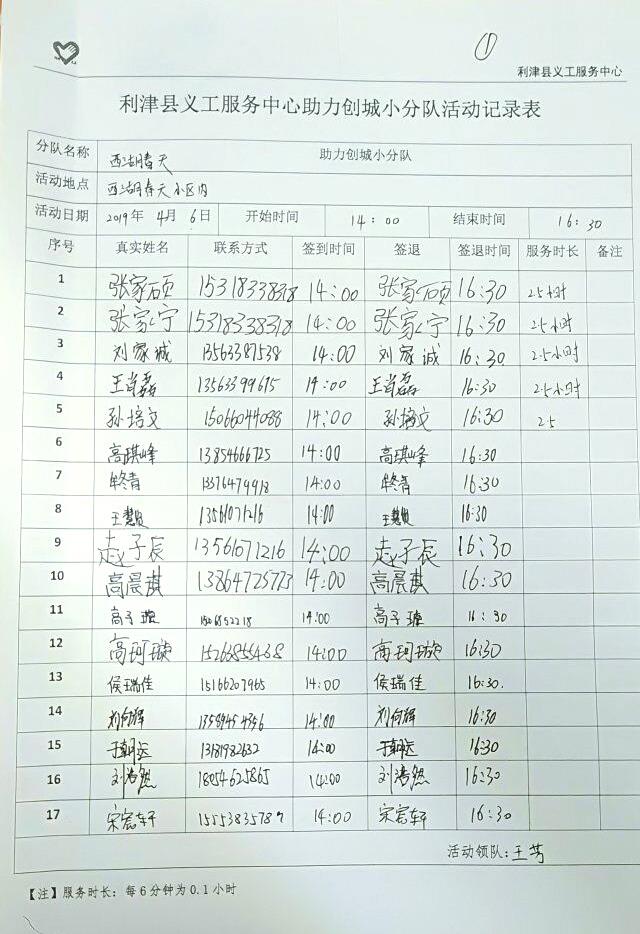 ①
利津县义工服务中心
利津县义工服务中心助力创城小分队活动记录表
分队名称 西湖春天 助力创城小分队
活动地点 西湖春天小区内
活动日期 2019年 4月 6日 开始时间 14:00 结束时间 16:30
序号 真实姓名 联系方式 签到时间 签退 签退时间 服务时长 备注
1 张家硕 15318338318 14:00 张家硕 16:30 2.5小时
2 张家宁 15318338318 14:00 张家宁 16:30 2.5小时
3 刘家诚 13563387538 14:00 刘家诚 16:30 2.5小时
4 王肖磊 13563399615 14:00 王肖磊 16:30 2.5小时
5 孙培文 15066044088 14:00 孙培文 16:30 2.5
6 高琪峰 13854666725 14:00 高琪峰 16:30
7 14:00 16:30
8 13561071216 14:00 16:30
9 赵子辰 13561071216 14:00 赵子辰 16:30
10 高晨祺 13864725773 14:00 高晨祺 16:30
11 14:00 16:30
12 高珂璇 15266855438 14:00 高珂璇 16:30
13 侯瑞佳 15166207965 14:00 侯瑞佳 16:30.
14 刘向辉 14:00 刘向辉 16:30
15 14:00 16:30
16 刘浩然 18654625865 14:00 刘浩然 16:30
17 宋宸轩 15553835787 14:00 宋宸轩 16:30
活动领队:王芳
【注】服务时长:每6分钟为0.1小时